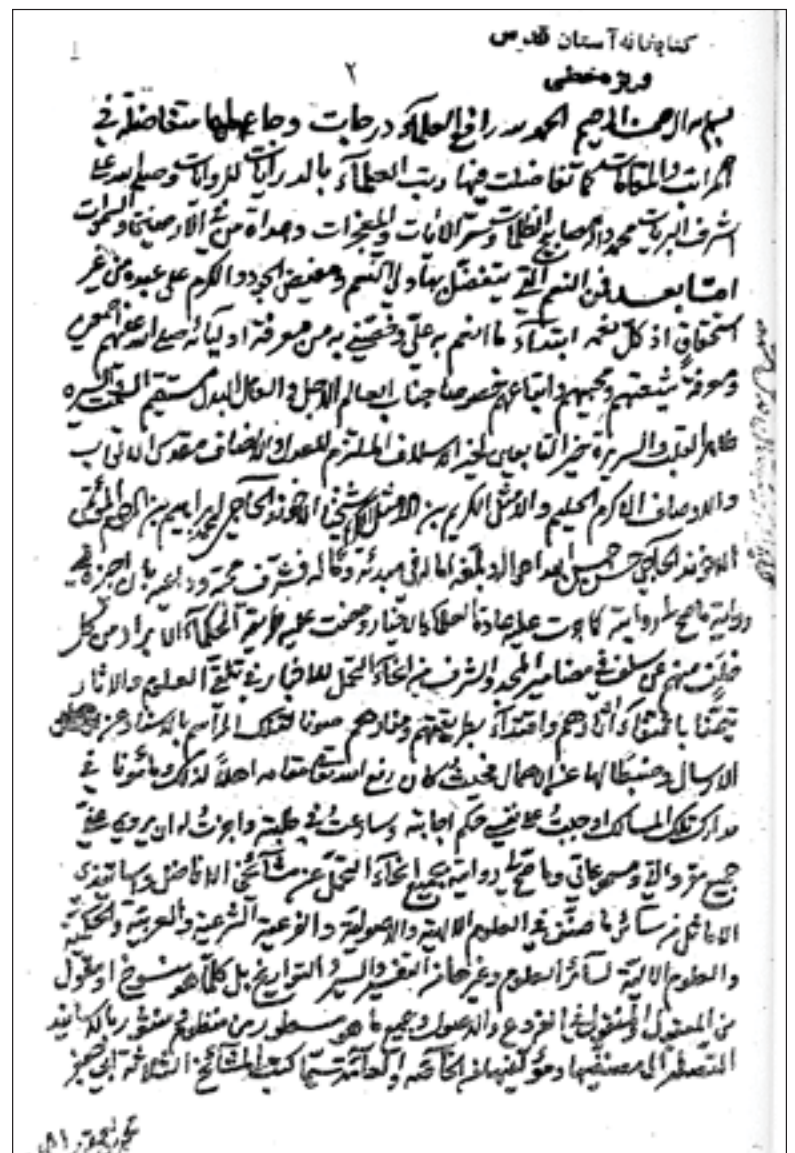 کتابخانه آستان قدس
ویژه خطی
۲
بسم الله الرحمن الرحیم الحمد لله رافع العلماء درجات وجاعلها متفاضلة فی
المراتب والمقامات کما تفاضلت فیها رتب العلماء بالدرایات للروایات وصلی الله علی
اشرف البریات محمد واله مصابیح الظلمات و الایات والمعجزات وهداة من فی الارضین والسموات
امّا بعد فمن النعم التی یتفضّل بها ولی النعم ومفیض الجود والکرم علی عبده من غیر
استحقاق اذ کلّ نعمه ابتداء ما انعم به علیّ وخصّنی به من معرفة اولیائه صلی الله علیهم اجمعین
ومعرفة شیعتهم ومحبیهم واتباعهم خصوصا جناب العالم الاجل والعامل البدل مستقیم السیرة
طاهر القلب والسریرة خیر التابعین لخیر الاسلاف الملتزم للعدل والانصاف
والاوصاف الاکرم الحلیم والامثل الکریم بن الاخوند الحاجی محمد ابراهیم بن المرحوم
الاخوند الحاجی حسن الله احواله وبلّغه اماله فی مبدئه ومآله فشرّف محبه وداعیه بان اجیزه
روایة ما صح لی روایته کما جرت علیه عادة العلماء الاخیار ومضت علیه طریقة الحکماء الابرار من کل
خلف منهم عن سلف فی مضامیر المجد والشرف من انحاء التحمل للاخبار فی تلقی العلوم والاثار
تیمّنا باقتفاء اثارهم واقتداء بطریقتهم ومنارهم صونا لتلک المراسم بالاسناد عن
الارسال وضبطا لها عن الاهمال فحیث کان رفع الله مقامه اهلاً لذلک ومامونا فی
مدارک تلک المسالک اوجبت علی نفسی حکم اجابته وسارعت فی طلبته واجزت له ان یروی عنی
جمیع مقرواتی ومسموعاتی وما صح لی روایته بجمیع انحاء التحمل عن مشائخی الافاضل واساتیذی
الاماثل من سائر ما صنّف فی العلوم الالهیة والاصولیة والفرعیة الشرعیة والعربیة والحکمیّة
والعلوم الالیّة لسائر العلوم وغیرها من التفسیر والسیر والتواریخ بل کلما هو منسوخ او منقول
من المعقول والمنقول فی الفروع والاصول وجمیع ما هو مسطور من منظوم ومنثور بالاسانید
المتصلة الی مصنفیها ومؤلفیها من الخاصّه والعامّة سیّما کتب المشائخ الثلاثة ابی جعفر